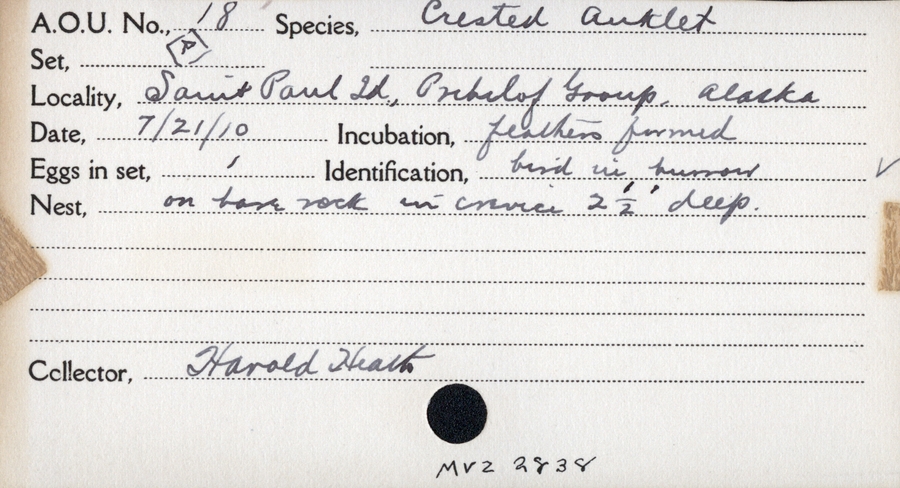 A.O.U. No., 18 Species, Crested Auklet
Set, A
Locality, Saint Paul Id., Pribilof Group, Alaska
Date, 7/21/10 Incubation, feathers formed
Eggs in set, 1 Identification, bird in burrow ✓
Nest, on bare rock in crevice 2 1/2' deep.
Collector, Harold Heath
MVZ 2838